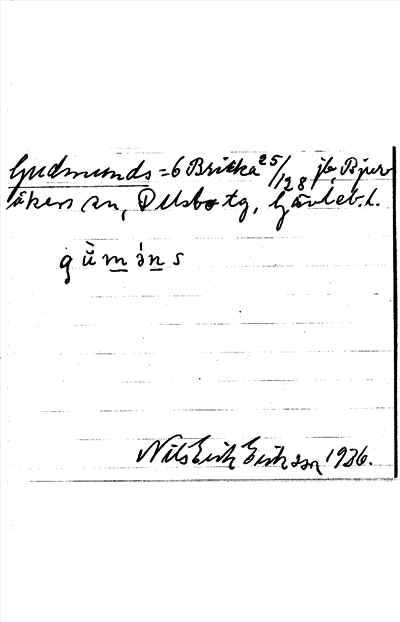 Gudmunds = 6 Bricka 25/128 jb, Bjur-
åkers sn, Dellsbo tg, Gävleb. l.
gùmə́ns
Nils Erik Eriksson 1936.